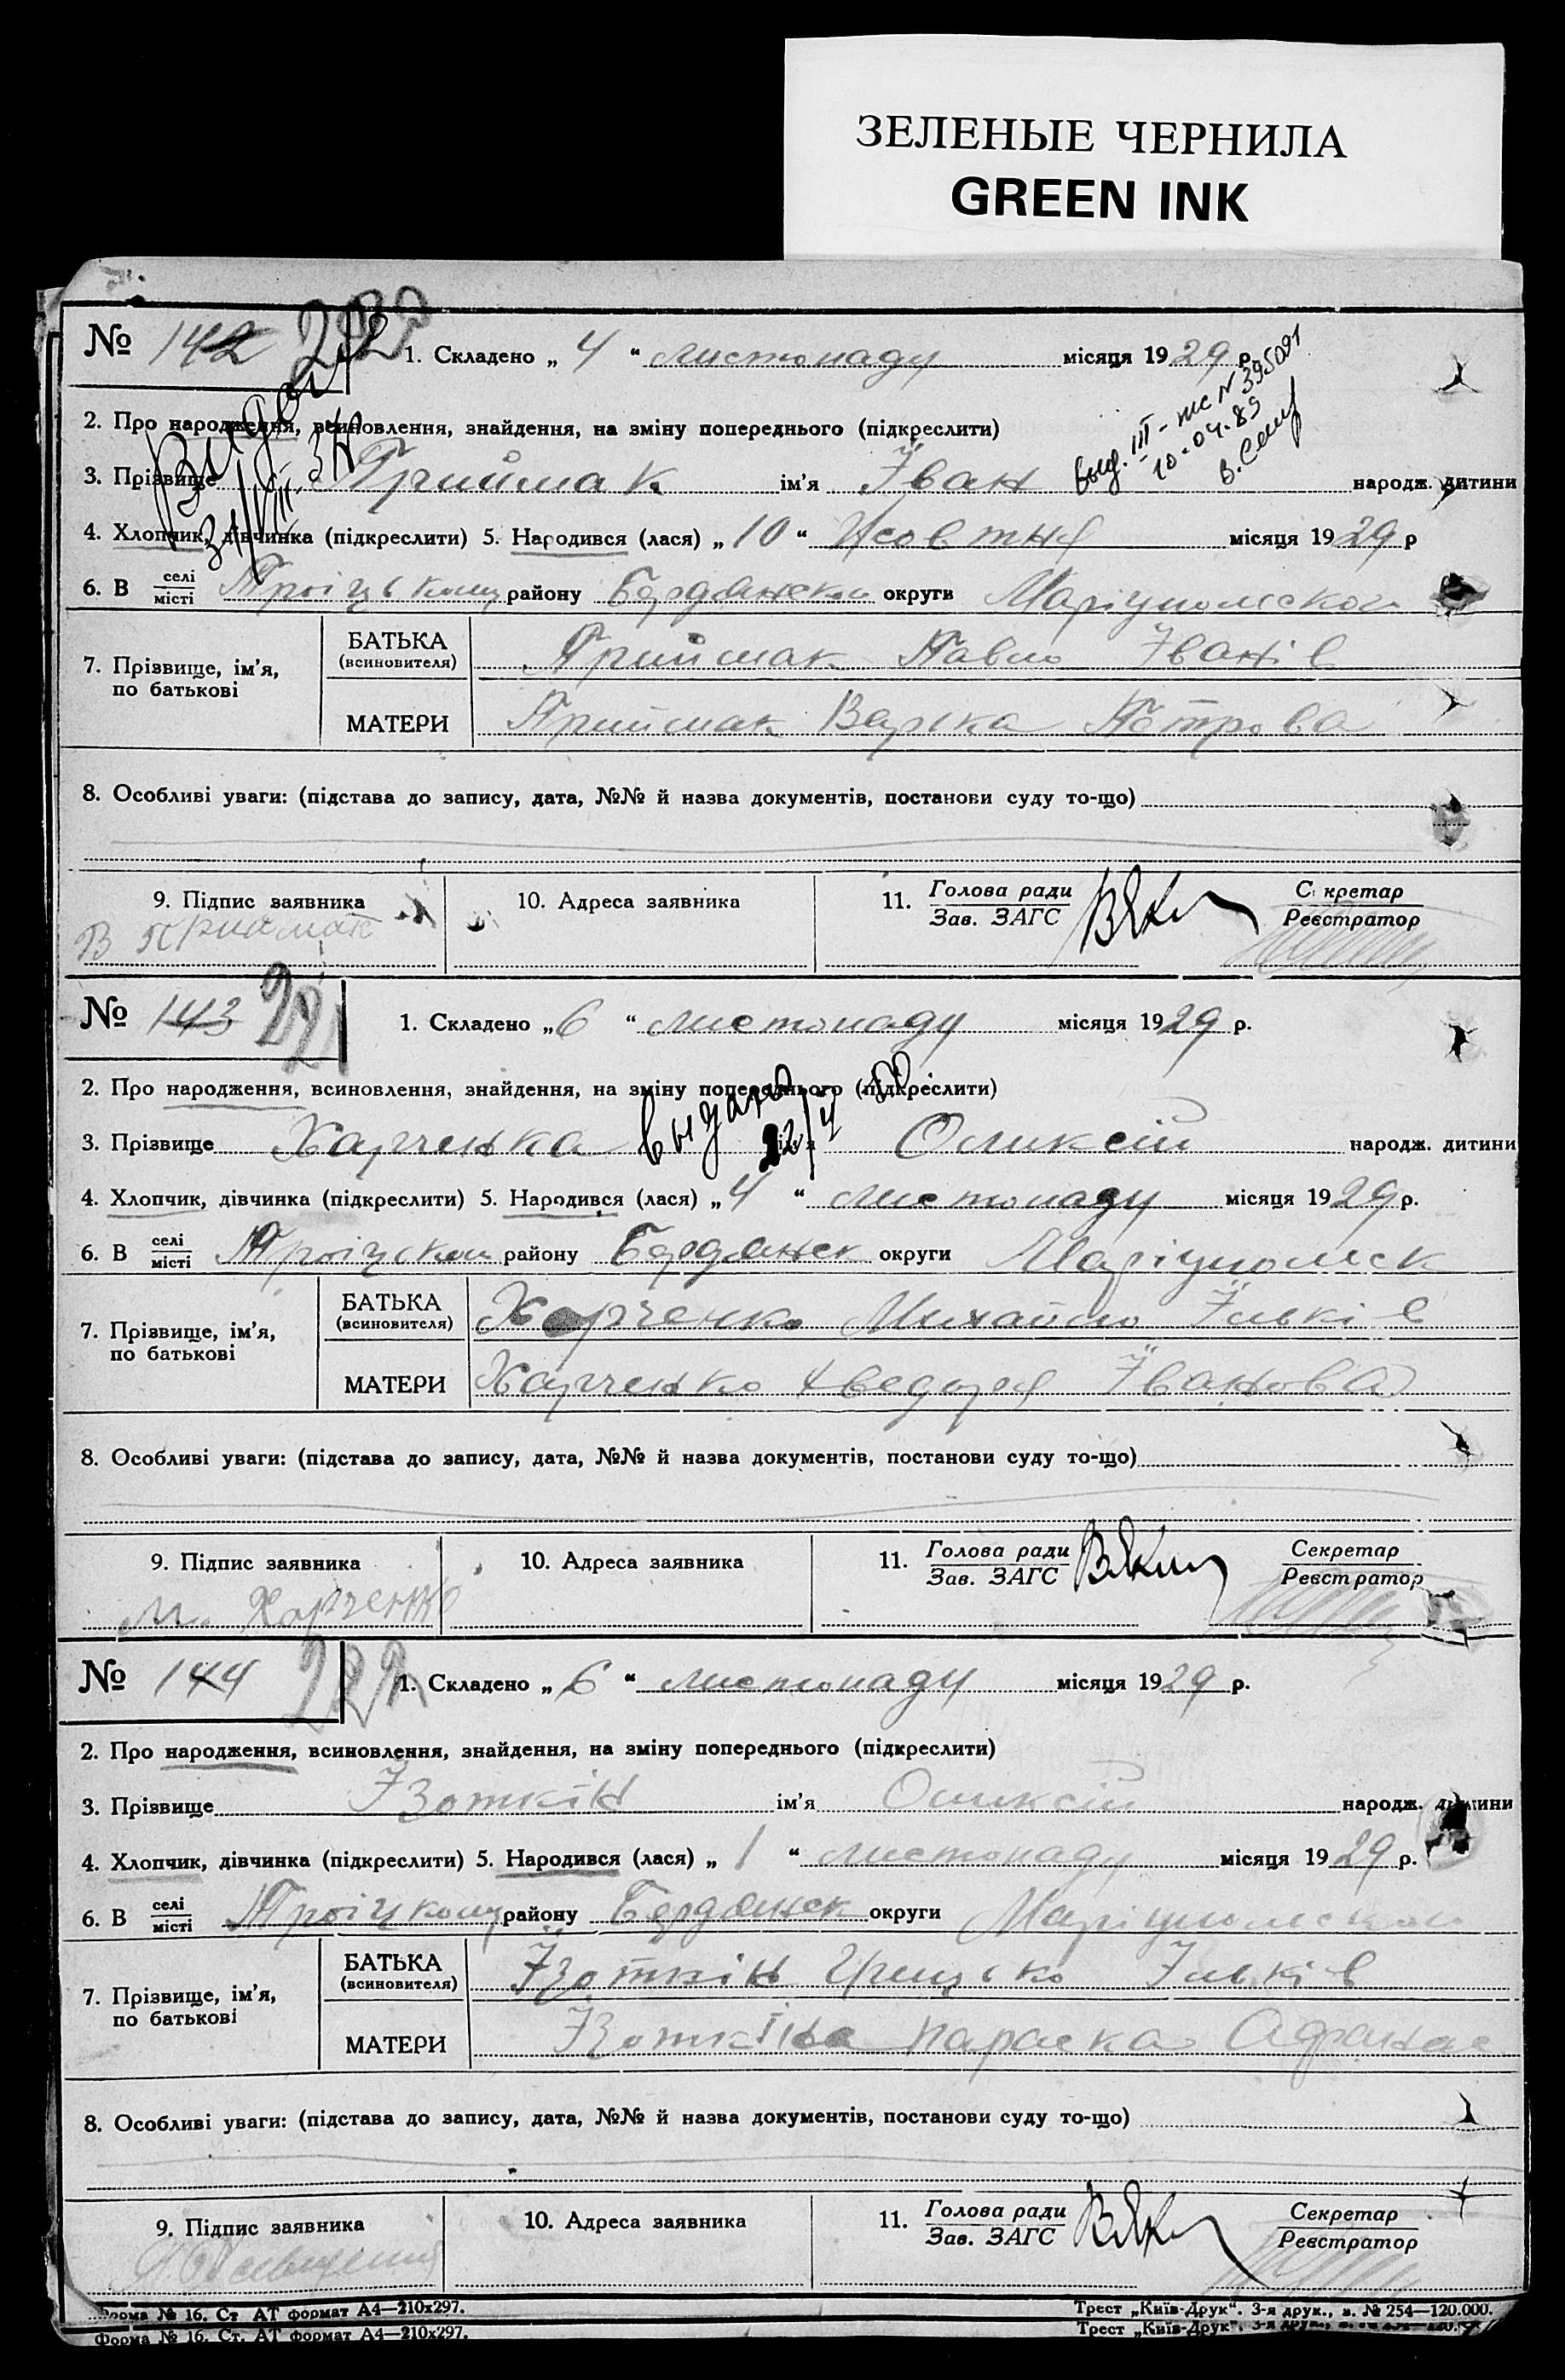 ЗЕЛЕНЫЕ ЧЕРНИЛА
GREEN INK
№ 142 220 1. Складено „ 4 “ листопаду місяця 1929 р.
2. Про народження, всиновлення, знайдення, на зміну попереднього (підкреслити)
выд. III-жс № 395091
10-04-89
3. Прізвище Приймак ім’я Іван народж. дитини
4. Хлопчик, дівчинка (підкреслити) 5. Народився (лася) „ 10 “ Жовтня місяця 1929 р
6. В селі/місті Троіцькому району Бердянськ округи Маріупольскої
7. Прізвище, ім’я, по батькові
БАТЬКА (всиновителя) Приймак Павло Іванів
МАТЕРИ Приймак Варка Петрова
8. Особливі уваги: (підстава до запису, дата, №№ й назва документів, постанови суду то-що)
9. Підпис заявника 10. Адреса заявника 11. Голова ради/Зав. ЗАГС Секретар/Реєстратор
В Приймак
№ 143 221 1. Складено „ 6 “ листопаду місяця 1929 р.
2. Про народження, всиновлення, знайдення, на зміну попереднього (підкреслити)
выдано
3. Прізвище Харченко ім’я Олексій народж. дитини
4. Хлопчик, дівчинка (підкреслити) 5. Народився (лася) „ 4 “ листопаду місяця 1929 р.
6. В селі/місті Троіцьком району Бердянск округи Маріупольск
7. Прізвище, ім’я, по батькові
БАТЬКА (всиновителя) Харченко Михайло Ільків
МАТЕРИ Харченко Хведоря Іванова
8. Особливі уваги: (підстава до запису, дата, №№ й назва документів, постанови суду то-що)
9. Підпис заявника 10. Адреса заявника 11. Голова ради/Зав. ЗАГС Секретар/Реєстратор
М. Харченко
№ 144 222 1. Складено „ 6 “ листопаду місяця 1929 р.
2. Про народження, всиновлення, знайдення, на зміну попереднього (підкреслити)
3. Прізвище Ізоткін ім’я Олексій народж. дитини
4. Хлопчик, дівчинка (підкреслити) 5. Народився (лася) „ 1 “ листопаду місяця 1929 р.
6. В селі/місті Троіцкому району Бердянск округи Маріупольскої
7. Прізвище, ім’я, по батькові
БАТЬКА (всиновителя) Ізоткін Грицько Ільків
МАТЕРИ Ізоткіна Параска Афанас
8. Особливі уваги: (підстава до запису, дата, №№ й назва документів, постанови суду то-що)
9. Підпис заявника 10. Адреса заявника 11. Голова ради/Зав. ЗАГС Секретар/Реєстратор
Форма № 16. Ст. АТ формат А4—210х297. Трест „Київ-Друк“. 3-я друк., з. № 254—120.000.
Форма № 16. Ст. АТ формат А4—210х297. Трест „Київ-Друк“. 3-я друк.